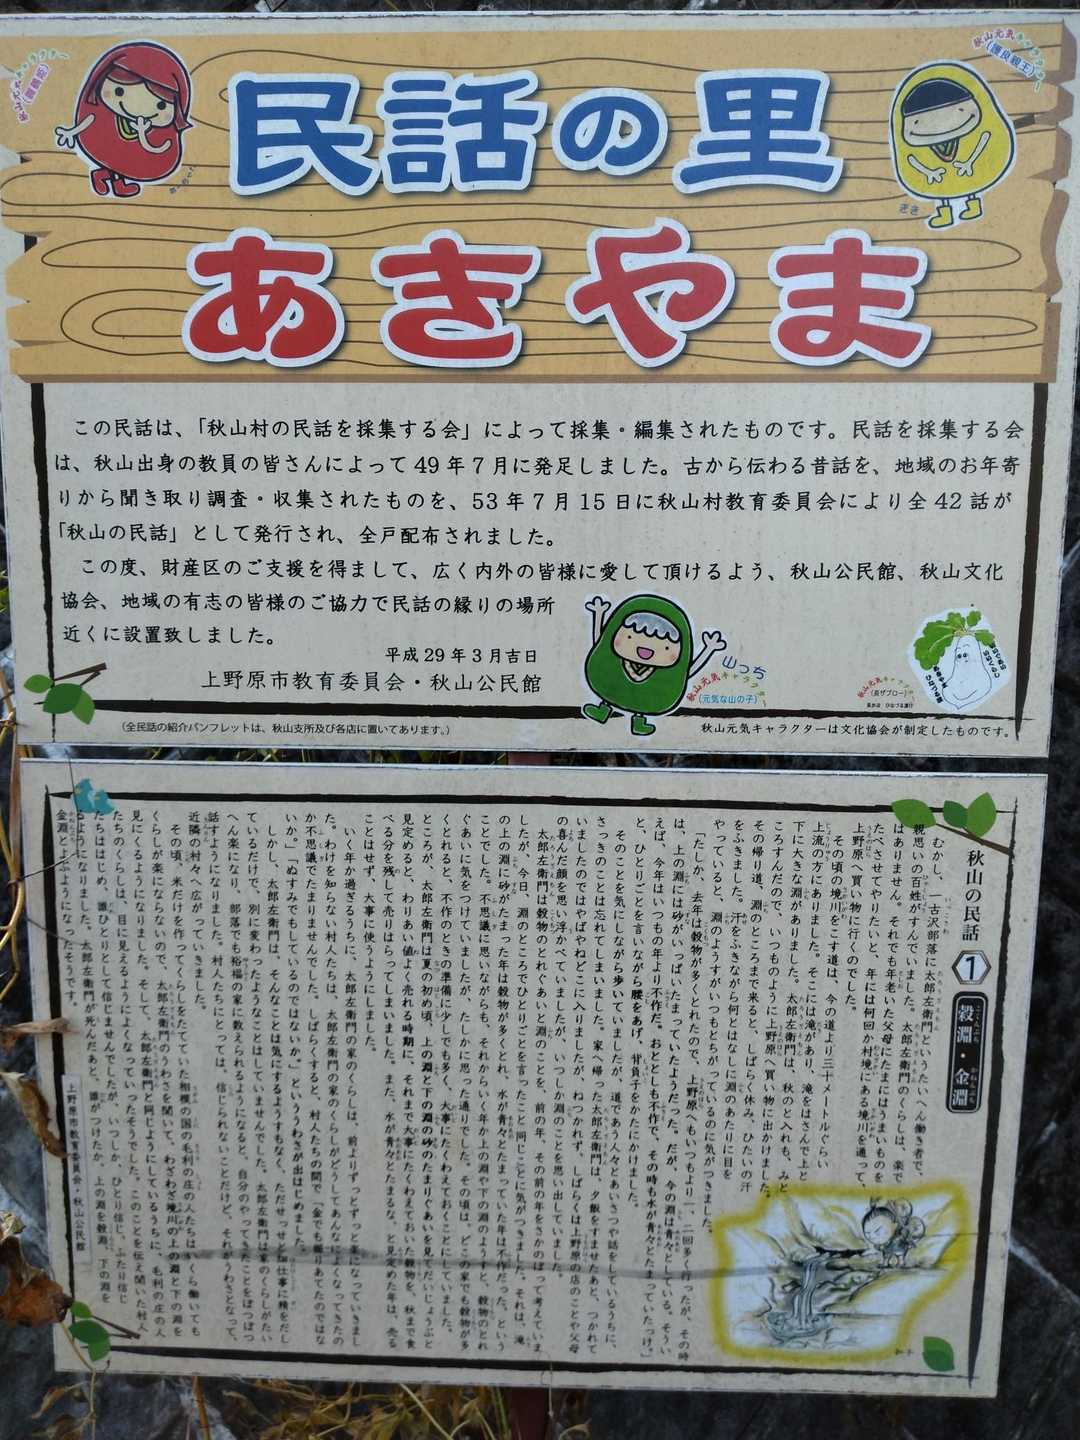 秋山元気キャラクター
(雛鶴姫)
民話の里
秋山元気キャラクター
(護良親王)
あきやま
この民話は、「秋山村の民話を採集する会」によって採集・編集されたものです。民話を採集する会
は、秋山出身の教員の皆さんによって49年7月に発足しました。古から伝わる昔話を、地域のお年寄
りから聞き取り調査・収集されたものを、53年7月15日に秋山村教育委員会により全42話が
「秋山の民話」として発行され、全戸配布されました。
この度、財産区のご支援を得まして、広く内外の皆様に愛して頂けるよう、秋山公民館、秋山文化
協会、地域の有志の皆様のご協力で民話の縁りの場所
近くに設置致しました。
平成29年3月吉日
上野原市教育委員会・秋山公民館
(全民話の紹介パンフレットは、秋山支所及び各店に置いてあります。)
山っち
秋山元気キャラクター
(元気な山の子)
秋山元気キャラクターは文化協会が制定したものです。
秋山の民話 1 穀淵・金淵
むかし、古沢部落に太郎左衛門というたいへん働き者で、
親思いの百姓がすんでいました。太郎左衛門のくらしは、楽で
はありません。それでも年老いた父母にたまにはうまいものを
たべさせてやりたいと、年には何回か村境にある境川を通って、
上野原へ買い物に行くのでした。
その頃の境川をこす道は、今の道より三十メートルぐらい
上流の方にありました。そこには滝があり、滝をはさんで上と
下に大きな淵がありました。太郎左衛門は、秋のとり入れも、みと
ころすんだので、いつものように上野原へ買い物に出かけました。
その帰り道、淵のところまで来ると、しばらく休み、ひたいの汗
をふきました。汗をふきながら何とはなしに淵のあたりに目を
やっていると、淵のようすがいつもとちがっているのに気がつきました。
「たしか、去年は穀物が多くとれたので、上野原へもいつもより一、二回多く行ったが、その時
は、上の淵には砂がいっぱいたまっていたようだった。だが、今の淵は青々としている。そうい
えば、今年はいつもの年より不作だ。おととしも不作で、その時も水が青々とたまっていたっけ。」
と、ひとりごとを言いながら腰をあげ、背負子をかたにかけました。
そのことを気にしながら歩いていましたが、道であう人々とあいさつや話をしているうちに、
さっきのことは忘れてしまいました。家へ帰った太郎左衛門は、夕飯をすませたあと、つかれて
いましたのではやばやねどこに入りましたが、ねつかれず、しばらくは上野原の店のことや父母
の喜んだ顔を思い浮かべていましたが、いつしか淵のことを思い出していました。
太郎左衛門は穀物のとれぐあいと淵のことを、前の年、その前の年をさかのぼって考えていま
したが、今日、淵のところでひとりごとを言ったことと同じことに気がつきました。それは、滝
の上の淵に砂がたまった年は穀物が多くとれ、水が青々とたまっていた年は不作だった。という
ことでした。不思議に思いながらも、それからいく年か上の淵や下の淵のようすと、穀物のとれ
ぐあいに気をつけていましたが、たしかに思った通りでした。その頃は、どこの家でも穀物が多
くとれると、不作のときの準備に少しでも多く、大事にたくわえておくことにしていました。
ところが、太郎左衛門は夏の初め頃、上の淵と下の淵の砂のたまりぐあいを見てだいじょうぶと
見定めると、わりあい値よく売れる時期に、それまで大事にたくわえておいた穀物を、秋まで食
べる分を残して売りはらってしまいました。また、水が青々とたまるな。と見定めた年は、売る
ことはせず、大事に使うようにしました。
いく年か過ぎるうちに、太郎左衛門の家のくらしは、前よりずっとずっと楽になっていきまし
た。わけを知らない村人たちは、太郎左衛門の家のくらしがどうしてあんなによくなってきたの
か不思議でたまりませんでした。しばらくすると、村人たちの間で「金でも掘りあてたのではな
いか。」「ぬすみでもしているのではないか。」といううわさが出はじめました。
しかし、太郎左衛門は、そんなことは気にするようすもなく、ただせっせと仕事に精をだし
ているだけで、別に変わったようなことはしていませんでした。太郎左衛門は家のくらしがたい
へん楽になり、部落でも裕福の家に数えられるようになると、自分のやってきたことをぽつぽつ
話すようになりました。村人たちにとっては、信じられないことだけど、それがうわさとなって、
近隣の村々へ広がっていきました。
その頃、米だけを作ってくらしをたてていた相模の国の毛利の庄の人たちは、いくら働いても
くらしが楽にならないので、太郎左衛門のうわさを聞いて、わざわざ境川の上の淵と下の淵を
見にくるようになりました。そして、太郎左衛門と同じようにしているうちに、毛利の庄の人
たちのくらしは、目に見えるようによくなっていったそうでした。このことを伝え聞いた村人
たちははじめ、誰ひとりとして信じませんでしたが、いつしか、ひとり信じ、ふたり信じ
るようになりました。太郎左衛門が死んだあと、誰がつけたか、上の淵を穀淵、下の淵を
金淵とよぶようになったそうです。
上野原市教育委員会・秋山公民館